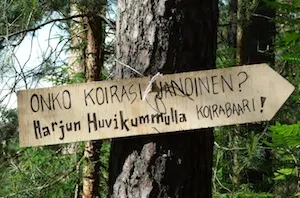 ONKO KOIRASI JANOINEN?
Harjun Huvikummulla KOIRABAARI!